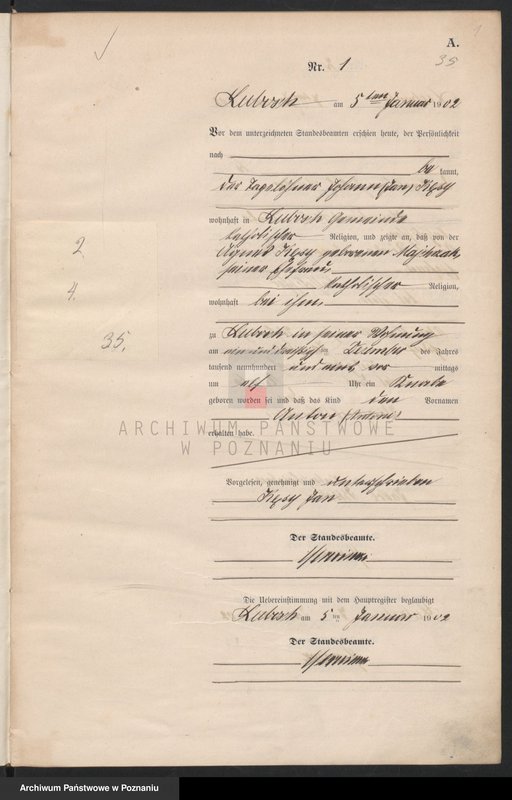 A.
35
Nr. 1
Lubosch am 5ten Januar 1902
Vor dem unterzeichneten Standesbeamten erschien heute, der Persönlichkeit
nach
be kannt,
der Tagelöhner Johann (Jan)
wohnhaft in Lubosch Gemeinde
katholischer Religion, und zeigte an, daß von der
geborenen
seiner Ehefrau
katholischer Religion,
wohnhaft bei ihm,
zu Lubosch in seiner Wohnung
am ein und dreißigsten Dezember des Jahres
tausend neunhundert und eins vor mittags
um elf Uhr ein Knabe
geboren worden sei und daß das Kind den Vornamen
Anton
erhalten habe.
Vorgelesen, genehmigt und unterschrieben
Jan
Der Standesbeamte.
Die Uebereinstimmung mit dem Hauptregister beglaubigt
Lubosch am 5ten Januar 1902
Der Standesbeamte.
2
4.
35.
ARCHIWUM PAŃSTWOWE
W POZNANIU
Archiwum Państwowe w Poznaniu